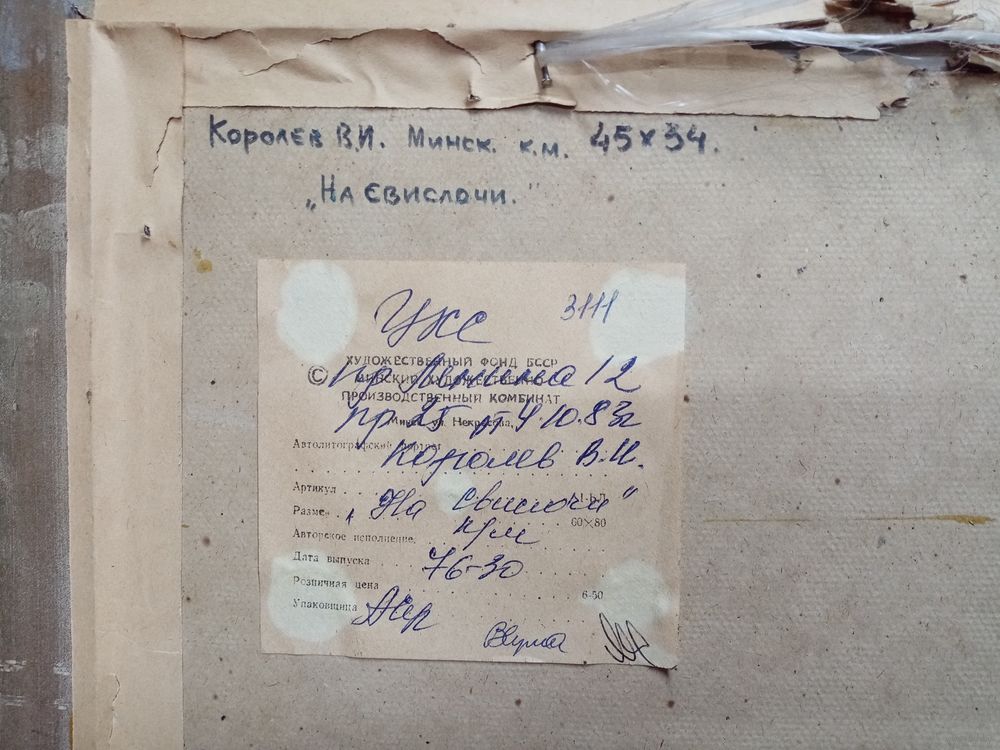 Королев В.И. Минск. к.м. 45×34.
„На Свислочи."
УКС 3111
ХУДОЖЕСТВЕННЫЙ ФОНД БССР
© МИНСКИЙ ХУДОЖЕСТВЕННО-
пр Ленина 12
ПРОИЗВОДСТВЕННЫЙ КОМБИНАТ
Минск ул. Некрасова,
пр 25 от 4.10.83г
Автолитографский портрет
Королев В.И.
Артикул
„На Свислочи"
Размер 60×80
Авторское исполнение к/м
Дата выпуска 76-30
Розничная цена 6-50
Упаковщица